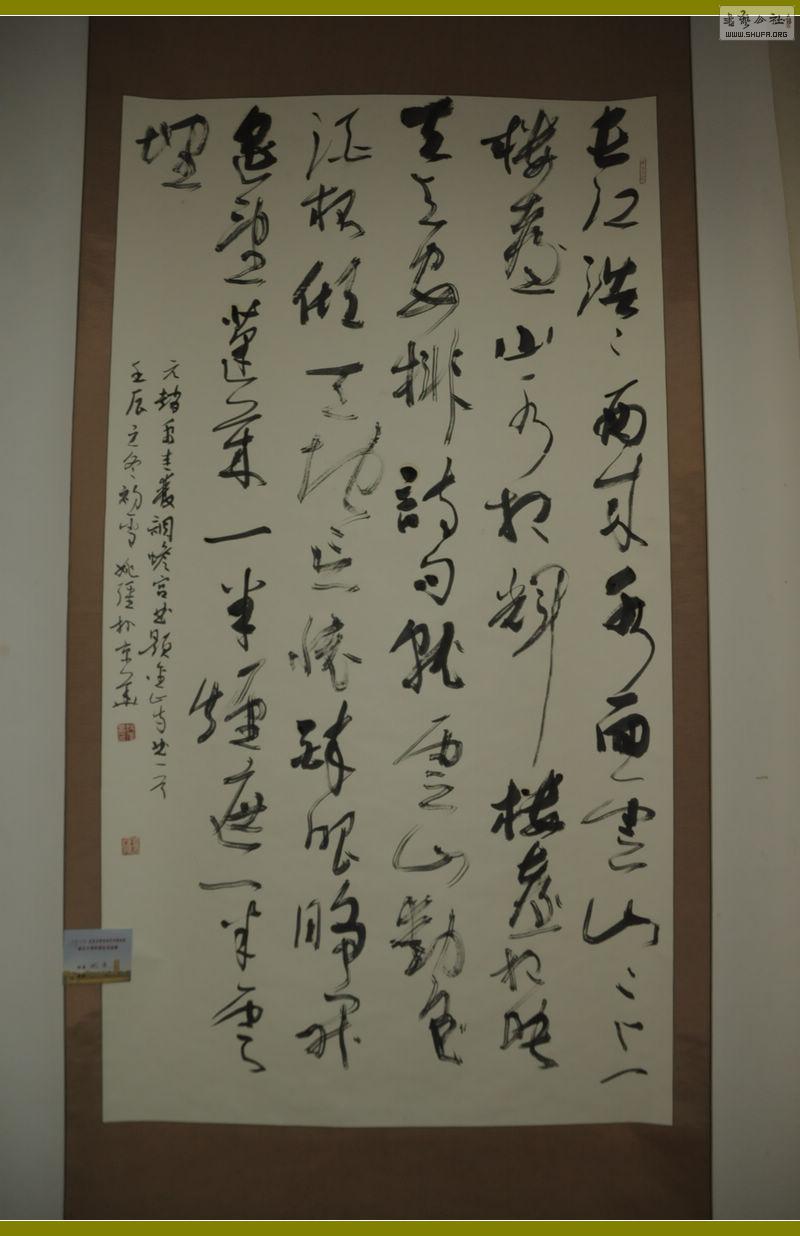 長江浩〻西來水面雲山〻上
樓臺山水相輝樓臺相映
天与安排詩句就雲山動色
酒杯傾天地忘懷醉眼睜開
遙望蓬萊一半煙遮一半雲
埋
元趙禹圭雙調蟾宮曲題金山寺曲一首
壬辰立冬初雪姚疆於京華
書藝公社
WWW.SHUFA.ORG